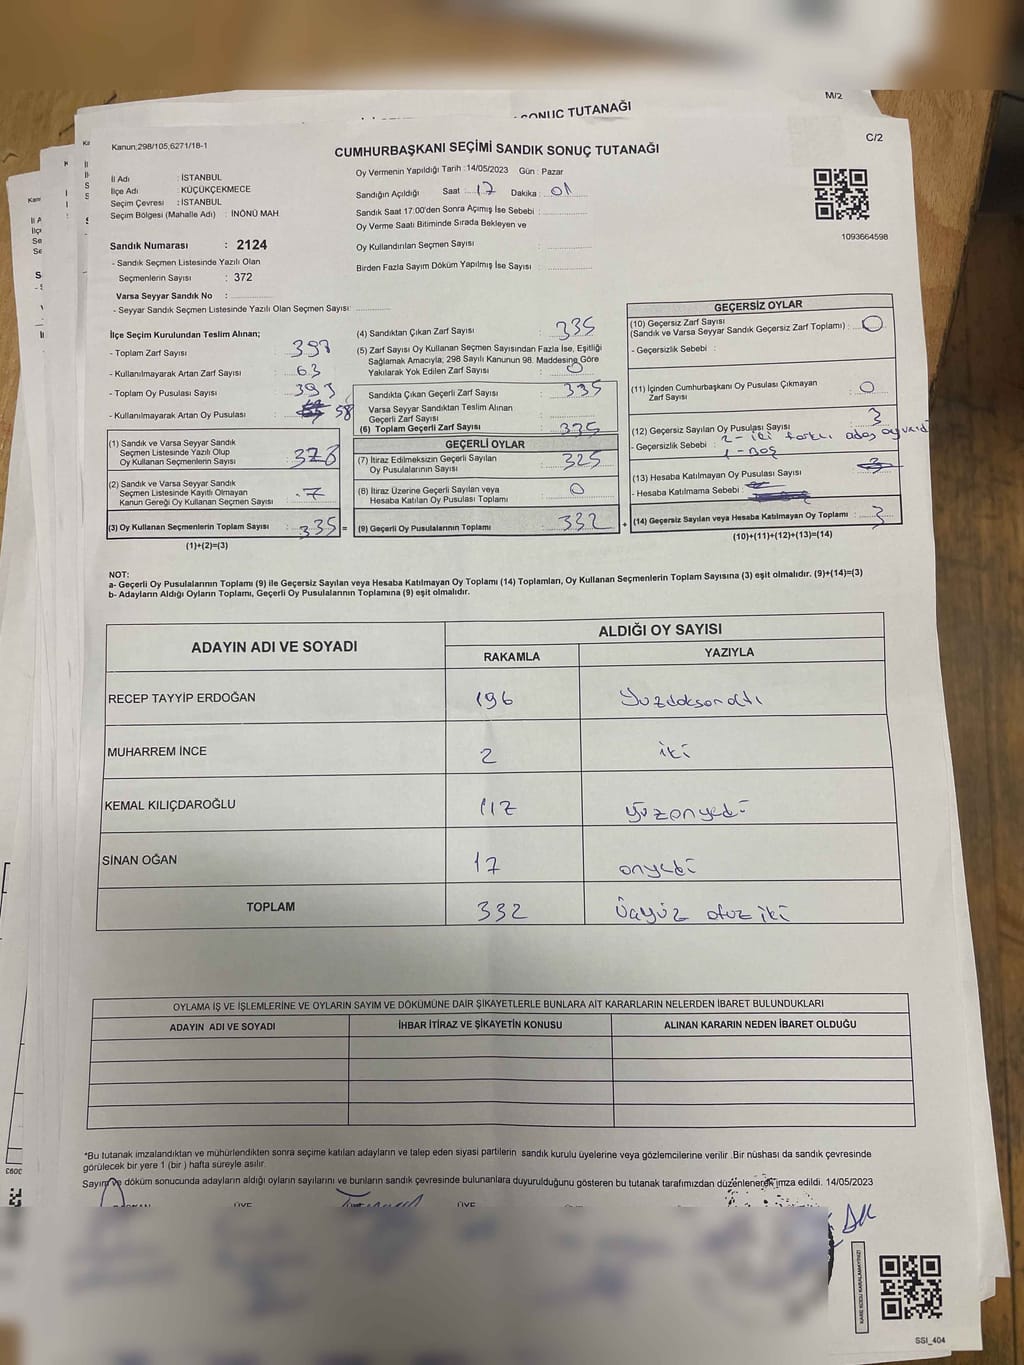 M/2
SONUÇ TUTANAĞI
C/2
Kanun,298/105,6271/18-1
CUMHURBAŞKANI SEÇİMİ SANDIK SONUÇ TUTANAĞI
İl Adı : İSTANBUL
İlçe Adı : KÜÇÜKÇEKMECE
Seçim Çevresi : İSTANBUL
Seçim Bölgesi (Mahalle Adı) : İNÖNÜ MAH.
Sandık Numarası : 2124
- Sandık Seçmen Listesinde Yazılı Olan
Seçmenlerin Sayısı : 372
Varsa Seyyar Sandık No :
- Seyyar Sandık Seçmen Listesinde Yazılı Olan Seçmen Sayısı:
Oy Vermenin Yapıldığı Tarih :14/05/2023 Gün : Pazar
Sandığın Açıldığı Saat : 17 Dakika : 01
Sandık Saat 17:00'den Sonra Açımış İse Sebebi :
Oy Verme Saati Bitiminde Sırada Bekleyen ve
Oy Kullandırılan Seçmen Sayısı :
Birden Fazla Sayım Döküm Yapılmış İse Sayısı :
1093664598
İlçe Seçim Kurulundan Teslim Alınan;
- Toplam Zarf Sayısı :
- Kullanılmayarak Artan Zarf Sayısı : 63
- Toplam Oy Pusulası Sayısı : 393
- Kullanılmayarak Artan Oy Pusulası : 58
(1) Sandık ve Varsa Seyyar Sandık
Seçmen Listesinde Yazılı Olup
Oy Kullanan Seçmenlerin Sayısı :
(2) Sandık ve Varsa Seyyar Sandık
Seçmen Listesinde Kayıtlı Olmayan
Kanun Gereği Oy Kullanan Seçmen Sayısı : 7
(3) Oy Kullanan Seçmenlerin Toplam Sayısı : 335 =
(1)+(2)=(3)
(4) Sandıktan Çıkan Zarf Sayısı : 335
(5) Zarf Sayısı Oy Kullanan Seçmen Sayısından Fazla İse, Eşitliği
Sağlamak Amacıyla; 298 Sayılı Kanunun 98. Maddesine Göre
Yakılarak Yok Edilen Zarf Sayısı : 0
Sandıkta Çıkan Geçerli Zarf Sayısı : 335
Varsa Seyyar Sandıktan Teslim Alınan
Geçerli Zarf Sayısı :
(6) Toplam Geçerli Zarf Sayısı : 335
GEÇERLİ OYLAR
(7) İtiraz Edilmeksizin Geçerli Sayılan
Oy Pusulalarının Sayısı : 325
(8) İtiraz Üzerine Geçerli Sayılan veya
Hesaba Katılan Oy Pusulası Toplamı : 0
(9) Geçerli Oy Pusulalarının Toplamı : 332 +
GEÇERSİZ OYLAR
(10) Geçersiz Zarf Sayısı
(Sandık ve Varsa Seyyar Sandık Geçersiz Zarf Toplamı) : 0
- Geçersizlik Sebebi :
(11) İçinden Cumhurbaşkanı Oy Pusulası Çıkmayan
Zarf Sayısı : 0
(12) Geçersiz Sayılan Oy Pusulası Sayısı : 3
- Geçersizlik Sebebi : 2 - iki farklı aday
1 - Boş
(13) Hesaba Katılmayan Oy Pusulası Sayısı :
- Hesaba Katılmama Sebebi :
(14) Geçersiz Sayılan veya Hesaba Katılmayan Oy Toplamı : 3
(10)+(11)+(12)+(13)=(14)
NOT:
a- Geçerli Oy Pusulalarının Toplamı (9) ile Geçersiz Sayılan veya Hesaba Katılmayan Oy Toplamı (14) Toplamları, Oy Kullanan Seçmenlerin Toplam Sayısına (3) eşit olmalıdır. (9)+(14)=(3)
b- Adayların Aldığı Oyların Toplamı, Geçerli Oy Pusulalarının Toplamına (9) eşit olmalıdır.
ADAYIN ADI VE SOYADI
ALDIĞI OY SAYISI
RAKAMLA YAZIYLA
RECEP TAYYİP ERDOĞAN 196 Yüzdoksanaltı
MUHARREM İNCE 2 iki
KEMAL KILIÇDAROĞLU 117 yüzonyedi
SİNAN OĞAN 17 onyedi
TOPLAM 332 Üçyüz otuz iki
OYLAMA İŞ VE İŞLEMLERİNE VE OYLARIN SAYIM VE DÖKÜMÜNE DAİR ŞİKAYETLERLE BUNLARA AİT KARARLARIN NELERDEN İBARET BULUNDUKLARI
ADAYIN ADI VE SOYADI İHBAR İTİRAZ VE ŞİKAYETİN KONUSU ALINAN KARARIN NEDEN İBARET OLDUĞU
*Bu tutanak imzalandıktan ve mühürlendikten sonra seçime katılan adayların ve talep eden siyasi partilerin sandık kurulu üyelerine veya gözlemcilerine verilir .Bir nüshası da sandık çevresinde
görülecek bir yere 1 (bir ) hafta süreyle asılır.
Sayım ve döküm sonucunda adayların aldığı oyların sayılarını ve bunların sandık çevresinde bulunanlara duyurulduğunu gösteren bu tutanak tarafımızdan düzenlenerek imza edildi. 14/05/2023
ÜYE ÜYE
KARE KODU KARALAMAYINIZ!
SSI_404